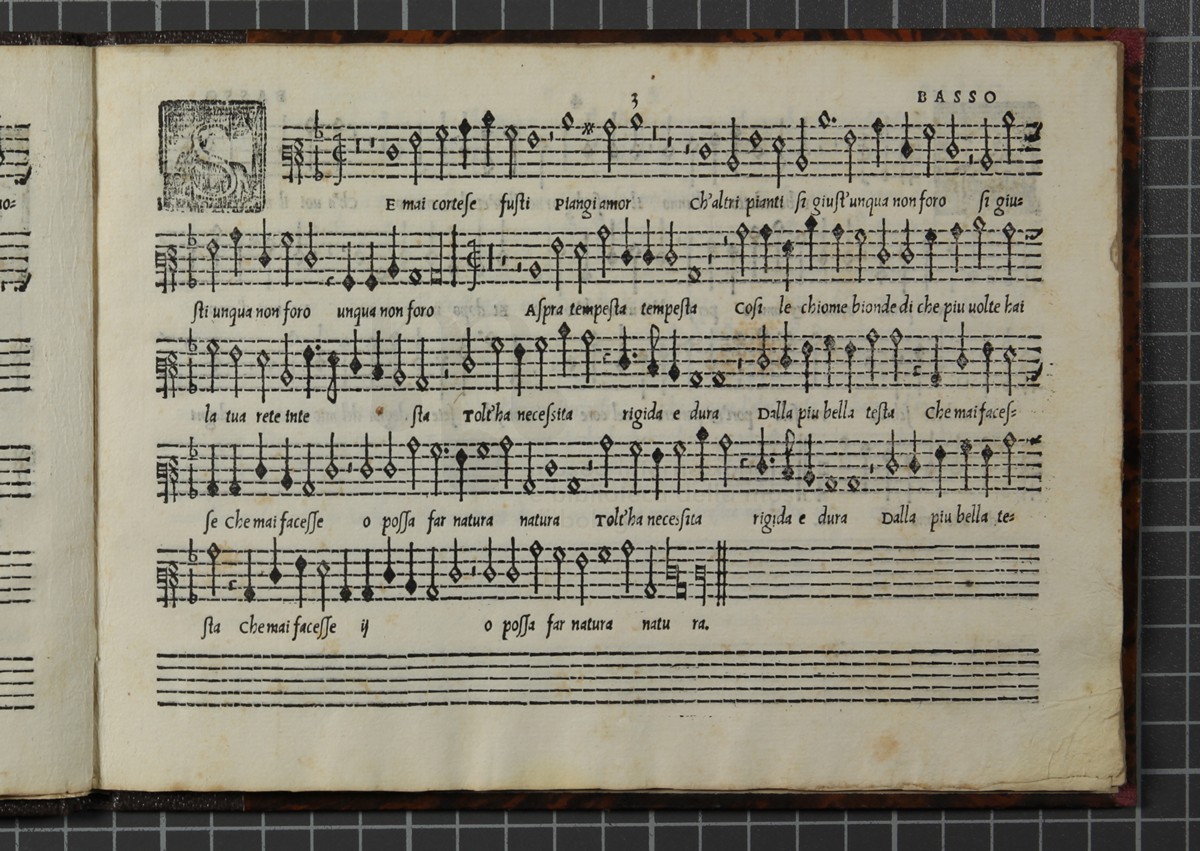 3 BASSO
SE mai cortese fusti Piangi amor Ch'altri pianti si giust'unqua non foro si giu=
sti unqua non foro unqua non foro Aspra tempesta tempesta Cosi le chiome bionde di che piu uolte hai
la tua rete inte sta Tolt'ha necessita rigida e dura Dalla piu bella testa Che mai faces=
se Che mai facesse o possa far natura natura Tolt'ha necessita rigida e dura Dalla piu bella te=
sta Che mai facesse ij o possa far natura natu ra.